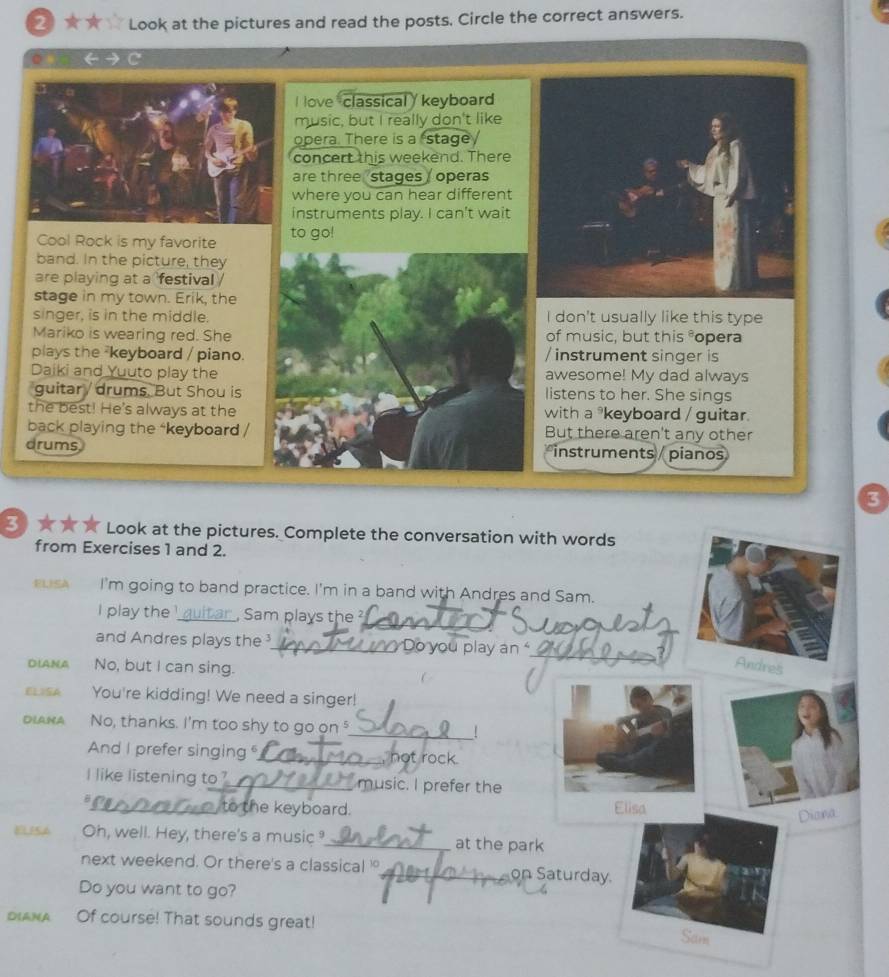 2 ★★☆ Look at the pictures and read the posts. Circle the correct answers.
Cool Rock is my favorite
band. In the picture, they
are playing at a ¹festival /
stage in my town. Erik, the
singer, is in the middle.
Mariko is wearing red. She
plays the ²keyboard / piano.
Daiki and Yuuto play the
³guitar / drums. But Shou is
the best! He's always at the
back playing the ⁴keyboard /
drums.
I love ⁵classical / keyboard
music, but I really don't like
opera. There is a ⁶stage /
concert this weekend. There
are three ⁷stages / operas
where you can hear different
instruments play. I can't wait
to go!
I don't usually like this type
of music, but this ⁸opera
/ instrument singer is
awesome! My dad always
listens to her. She sings
with a ⁹keyboard / guitar.
But there aren't any other
¹⁰instruments / pianos.
3
3 ★★★ Look at the pictures. Complete the conversation with words
from Exercises 1 and 2.
ELISA I'm going to band practice. I'm in a band with Andres and Sam.
I play the ¹ guitar , Sam plays the ²
and Andres plays the ³ Do you play an ⁴ ?
DIANA No, but I can sing.
ELISA You're kidding! We need a singer!
DIANA No, thanks. I'm too shy to go on ⁵ !
And I prefer singing ⁶ , not rock.
I like listening to ⁷ music. I prefer the
⁸ to the keyboard.
ELISA Oh, well. Hey, there's a music ⁹ event at the park
next weekend. Or there's a classical ¹⁰ on Saturday.
Do you want to go?
DIANA Of course! That sounds great!
Andres
Elisa
Diana
Sam